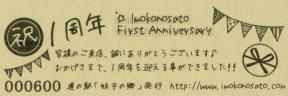 祝 1周年 Imokonosato
First Anniversary
皆様のご来店、誠にありがとうございます♪
おかげさまで、1周年を迎える事ができました!!
000600 道の駅「妹子の郷」発行 http://www.imokonosato.com